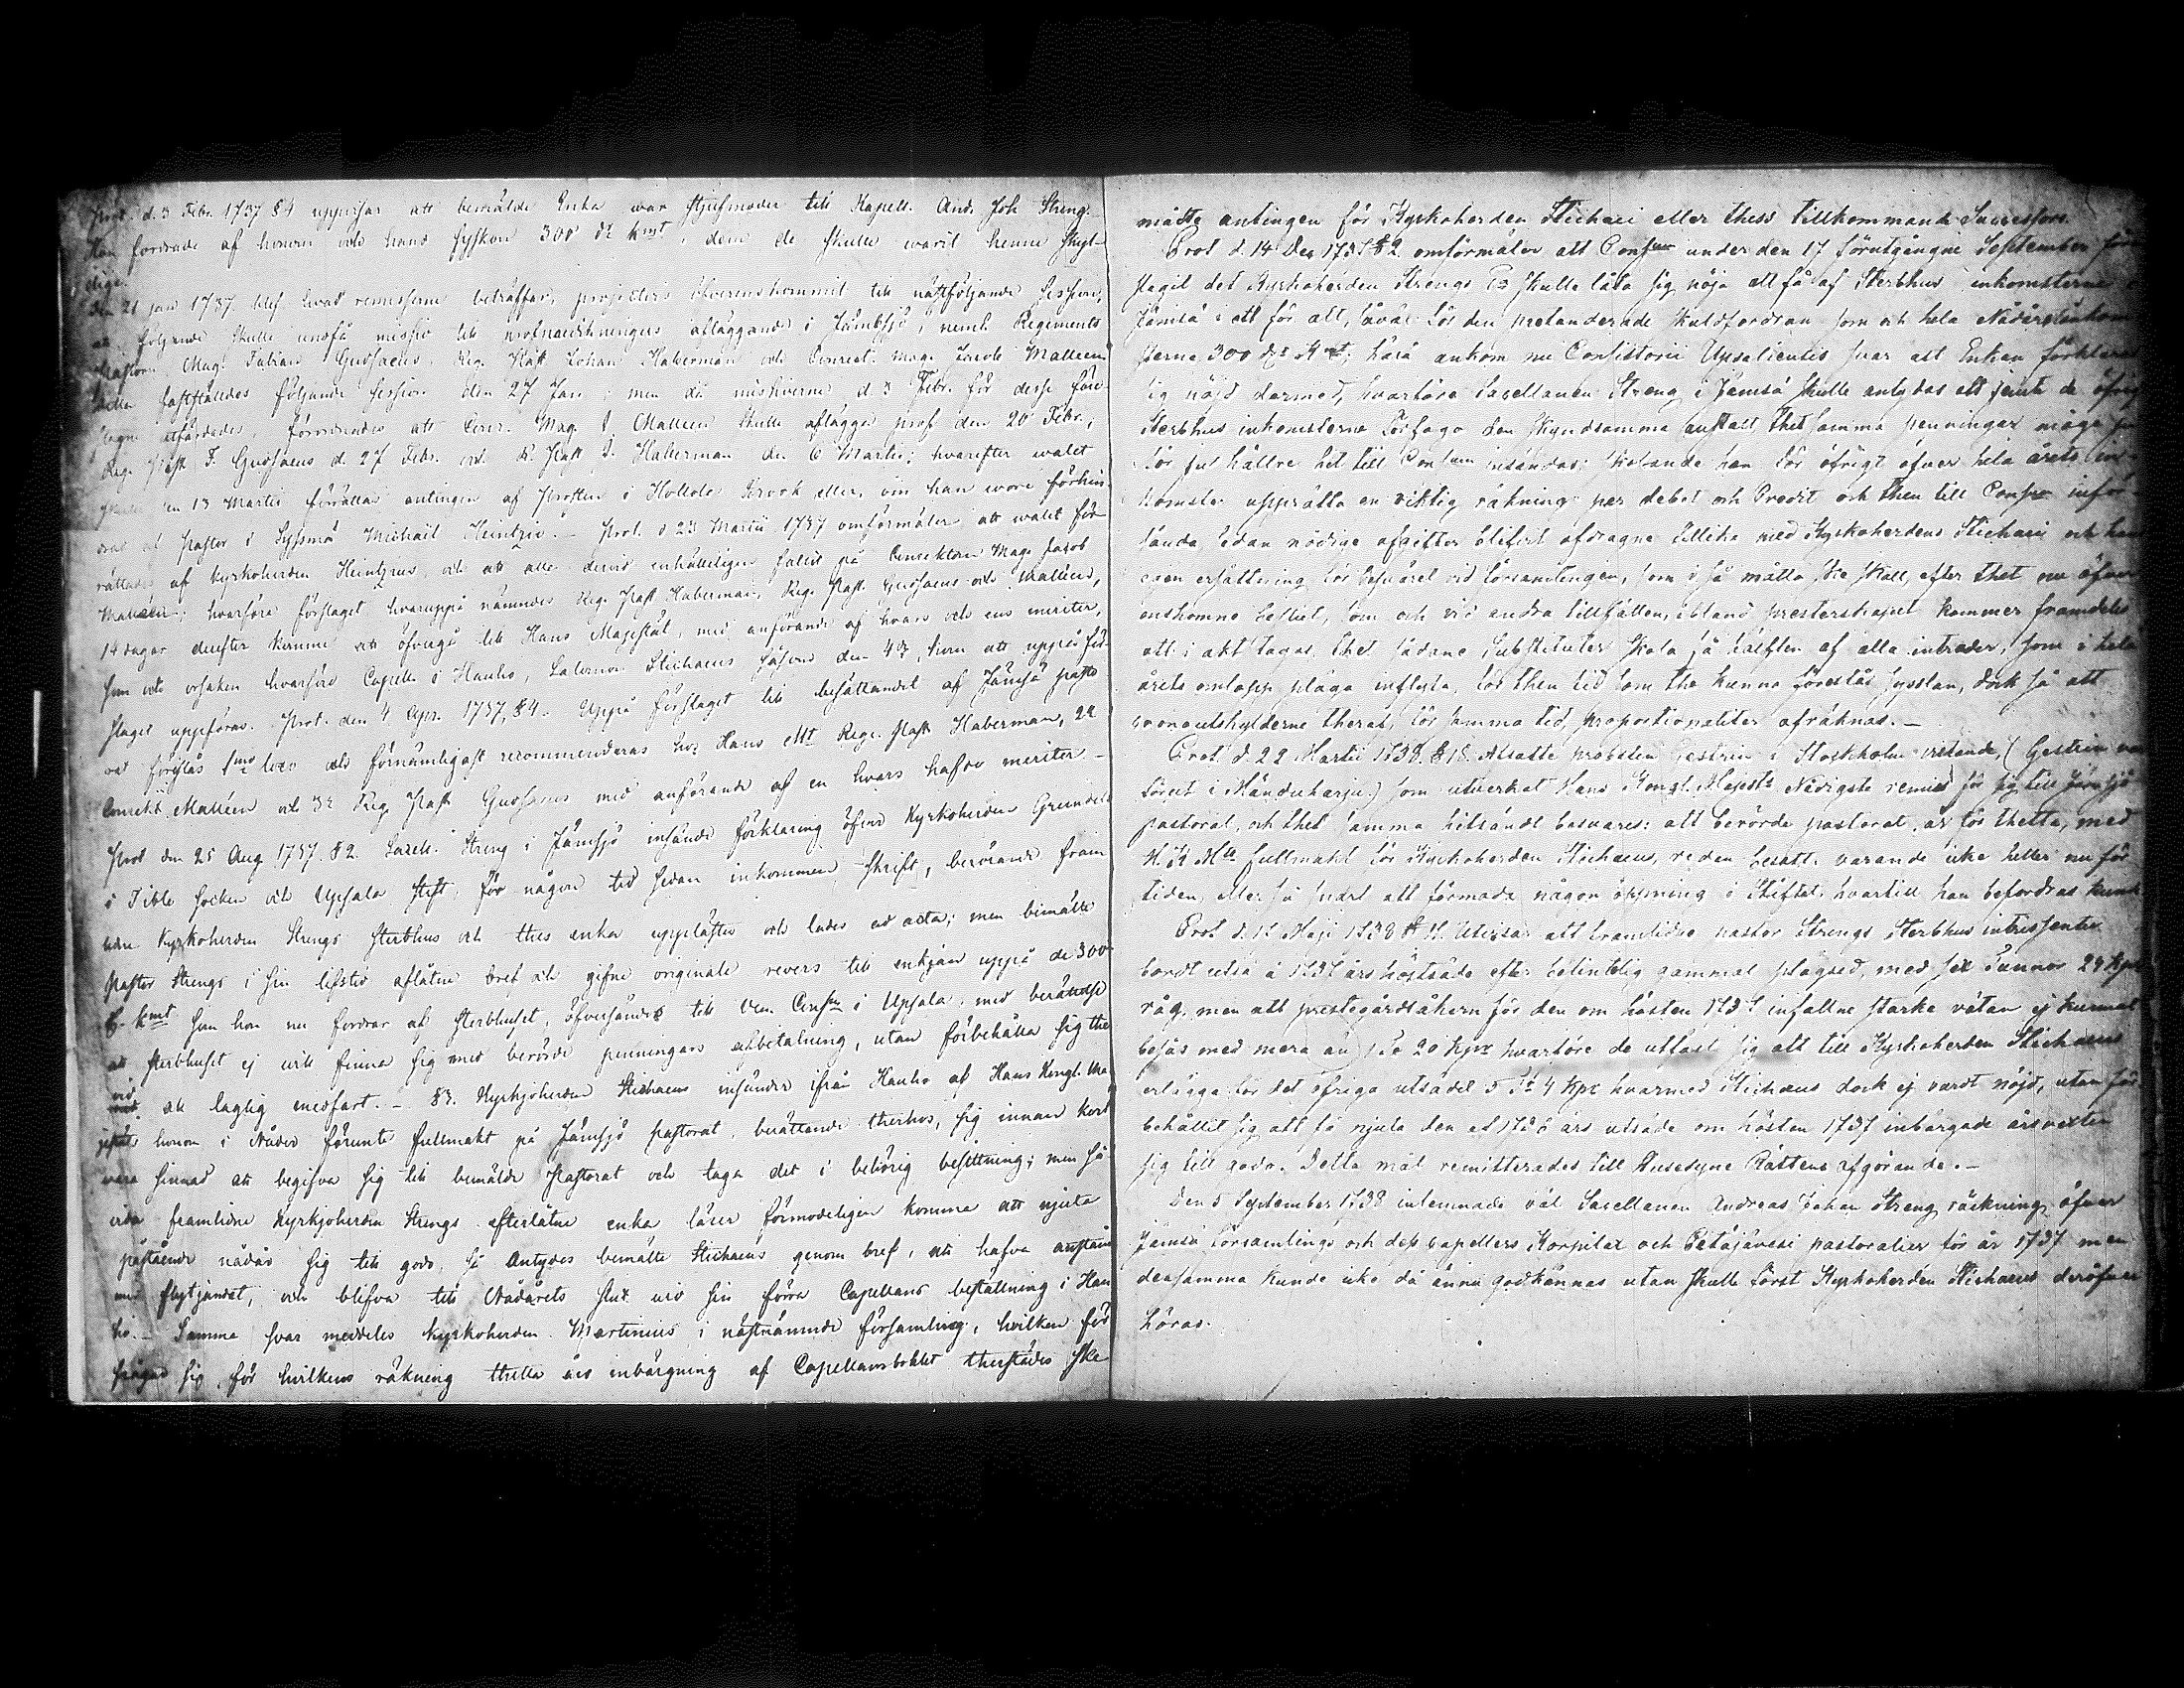 Prot. d. 3 Febr. 1737 §4 upprisar att bemälde Enka war stjufmoder till Kapell. And. Joh Streng.
Hon fordrade af honom och hans syskon 300 dr kmt, dem de skulle warit henne skyl-
dige.
Den 21 jan 1737 blef hwad remisserne beträffar, projecters öfverenskommit till nästföljande session,
at följande skulle undfå missiv till profpredikningars afläggande i Jämbsjö, neml. Regements
Pastorn Mag. Fabian Gudsaeus, Reg. Past Johan Haberman och Conrect. mag. Jacob Malleen
fastställdes följande session den 27 Jan; men då missiverne d. 3 Febr. för desse före-
utfärdades, förordnades att Conr. Mag. J. Malleen skulle aflägga prof den 20 Febr.;
Reg. Past F. Gudsaeus d. 27 Febr. och R. Past J. Haberman den 6 Martii; hvarefter walet
skulle den 13 Martii förrättas antingen af Prosten i Hollola Krook eller, om han wore förhin-
drad af Pastor i Syssmä Michaël Heintzie. – Prot. d 23 Martii 1737 omförmäler att walet för-
rättades af Kyrkoherden Heintzius, och att alle dervid enhälleligen fallit på Conrektorn Mag. Jacob
Malleen; hvarföre förslaget hvaruppå nämndes Reg. Past Haberman, Reg. Past. Gudsaeus och Malleen,
14 dagar derefter kunne att öfvergå till Hans Majestät, med anförande af hvars och ens meriter,
som och orsaken hvarföre Capell. i Hauho, Salomon Stichaeus såsom den 4de, kom att uppå för-
slaget uppföras. Prot. den 4 Apr. 1737, §4. Uppå förslaget till besättandet af Jämsä past
rat föreslås 1mo loco och förnämligast recommenderas hos Hans Mt Reg. Past Haberman, 2do
Conrekt. Malleen och 3o Reg. Past Gudsaeus med anförande af en hvars hafde meriter –
Prot den 25 Aug 1737 §2. Sacell. Streng i Jämsjö insände förklaring öfver Kyrkoherden Grundels
i Tible socken och Upsala Stift, för någon tid sedan inkommen skrift, berörande fram
Kyrkoherden Strengs sterbhus och thes enka upplästes och lades ad acta; men bemälte
Pastor Strengs i sin lifstid aflåtne bref och gifne originale revers till enkjan uppå de 300
kmt som hon nu fordrar af sterbhuset, öfversändes till Ven. Consm i Upsala, med berättelse
att sterbhuset ej will finna sig med berörde penningars afbetalning, utan förbehålla sig the
vid alt laglig medfart. – §3. Kyrkjoherden Stichaeus insände ifrån Hauho af Hans Kongl. Ma
jestät honom i Nåder förunte fullmakt på Jämsjö pastorat, berättande therhos, sig innan kort
vara sinnad att begifva sig till bemälde Pastorat och taga det i behörig besittning; men så
framlidne Kyrkjoherden Strengs efterlåtne enka lärer förmodeligen komma att njuta
påstående nådår sig till godo, så antydes bemälte Stichaeus genom bref, att hafva anstånd
med flyttjandet, och blifva till Nådårets slut vid sin förra Capellans beställning i Hau
ho. – Samma svar meddeles kyrkoherden Martinius i nästnämnde församling, hvilken för
frågar sig, för hvilkens räkning thetta års inbärgning af Capellansbohlet therstädes ske
måtte antingen för Kyrkoherden Stichaei eller thess tillkommande Successors.
Prot d. 14 Dec 1737 §2 omförmäler att Consum under den 17 förutgångne September före
slagit det Kyrkoherden Strengs Ea skulle låta sig nöja att få af Sterbhus inkomsterne i
Jämsä i ett för allt, såväl för den pretenderade skuldfordran som och hela Nådårsinkom
sterne 300 dr Kmt; härå ankom nu Consistorii Upsaliensis svar att Enkan förklarat
sig nöjd dermed, hvarföre Sacellanen Streng i Jämsä skulle antydas att jemte de öfrige
Sterbhus inkomsterne förfoga den skyndsamma anstalt, thet samma penningar måge
för jul hällre hit till Consum insändas; skolande han för öfrigt öfver hela årets in-
komster upprätta en riktig räkning per debet och Credit och then till Consm inför
sända, sedan nödige afgifter blifvit afdragne tillika med Kyrkoherdens Stichaei och hans
egen ersättning för besväret vid församlingen, som i så måtta ske skall, efter thet nu öfver
enskomne beslut, som och vid andra tillfällen, ibland presterskapet kommer framdeles
att i akt tagas, thet sådane Substituter skola få hälften af alla intrader, som i hela
årets omlopp pläga inflyta, för then tid som the kunna förestås sysslan, dock så att
cronoutskylderne theraf, för samma tid, proportionaliter afräknas. –
Prot. d. 22 Martii 1738. § 18. Afsatte probsten Gestrin i Stockholm vistande, (Gestrin var
förut i Mändyharju) som utverkat Hans Kongl. Majestts Nådigste remiss för sig till Jämsjö
pastorat, och thet samma hitsändt besvares: att berörde pastorat, är för thetta, med
H. K Mtts fullmakt för Kyrkoherden Stichaeus, reden besatt. varande icke heller nu för
tiden, eller så snart att förmoda någon öppning i Stiftet hvartill han befordras kunde
Prot. d. 11 Maji 1738 § 11. Utvisar att framlidne pastor Strengs Sterbhus intressenter
bordt utså å 1737 års höstsäde efter befintelig gammal plagsed, med sex Tunnor 24 kpr
råg, men att prestegårdsåkern för den om hösten 1737 infallne starke vätan ej kunnat
besås med mera än 1 Ta 20 kpr hvarföre de utfäst sig att till Kyrkoherden Stichaeus
erlägga för det öfriga utsädet 5 Tr 4 Kpr hvarmed Stichaeus dock ej vardt nöjd, utan för-
behållit sig att få njuta den af 1736 års utsäde om hösten 1737 inbärgade årsvexten
sig till godo. Detta mål remitterades till Husesyne Rättens afgörande. –
Den 5 September 1738 inlemnade väl Sacellanen Andreas Johan Streng räckning öfver
Jämsä församlings och dess capellers Korpilax och Petäjävesi pastoralier för år 1737 men
densamma kunde icke då ännu godkännas utan skulle först Kyrkoherden Stichaeus deröfver
höras.